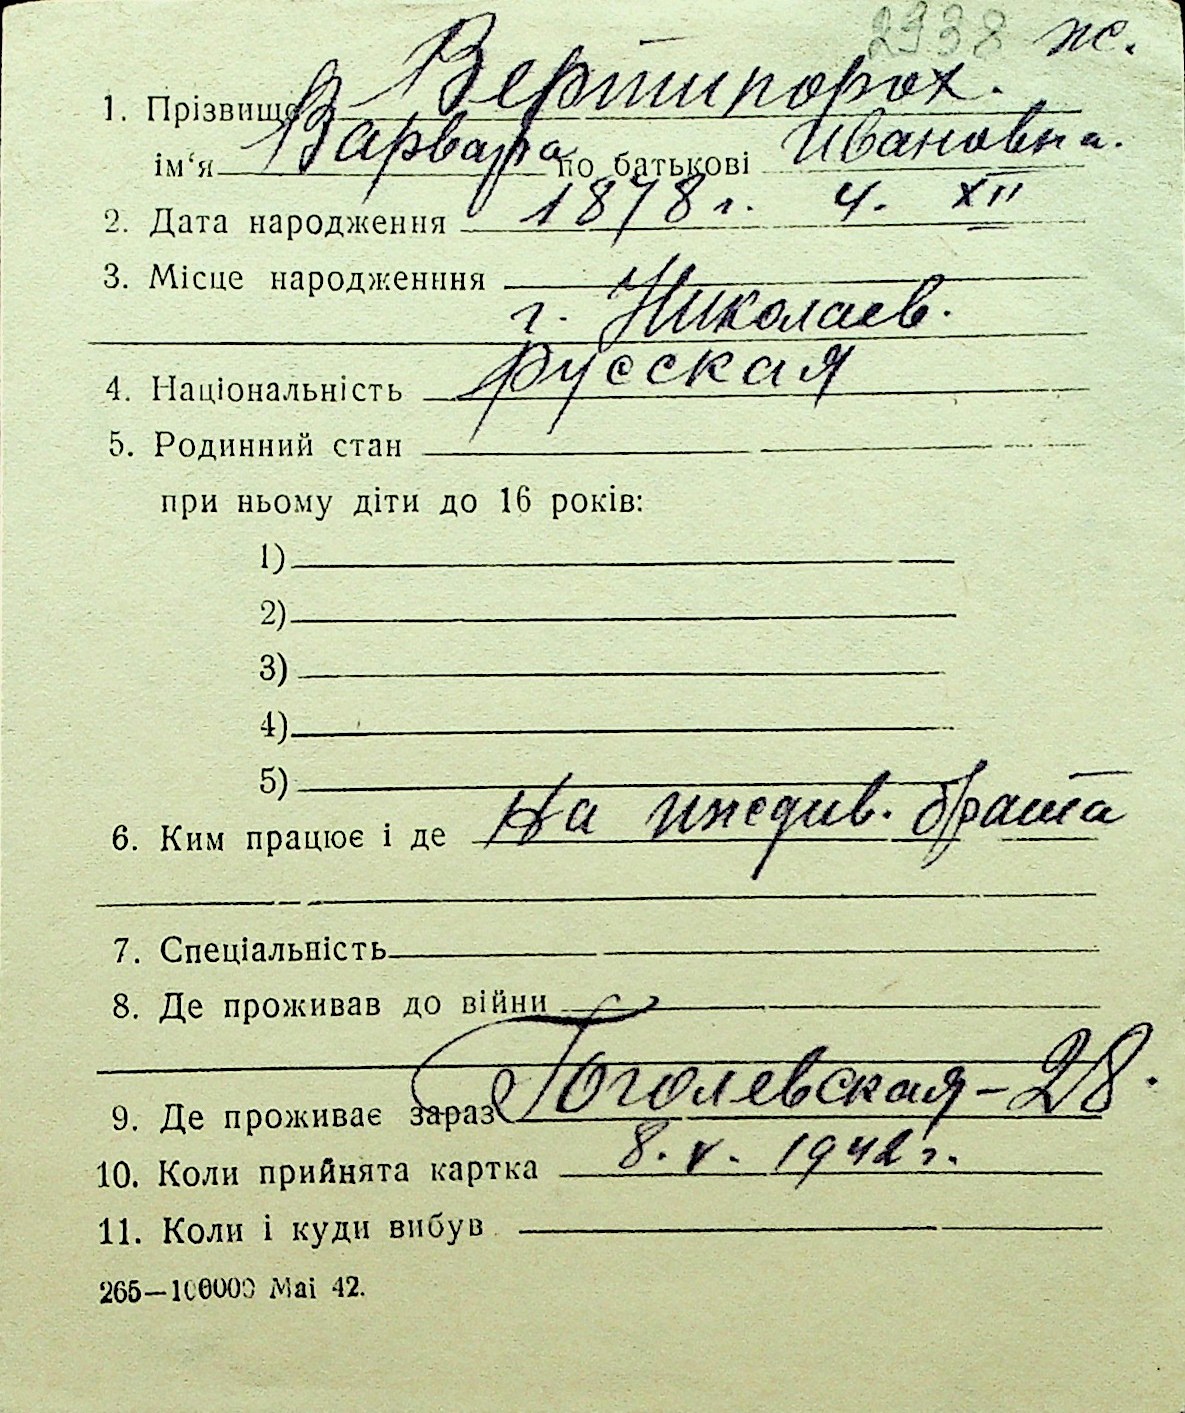 2938 ж.
1. Прізвище Вертипорох.
ім‘я Варвара по батькові Ивановна.
2. Дата народження 1878 г. 4. XII
3. Місце народженння
г. Николаев.
4. Національність русская
5. Родинний стан
при ньому діти до 16 років:
1)
2)
3)
4)
5)
6. Ким працює і де На иждив. брата
7. Спеціальність
8. Де проживав до війни
9. Де проживає зараз Гоголевская – 28.
10. Коли прийнята картка 8. V. 1942 г.
11. Коли і куди вибув
265—100000 Mai 42.